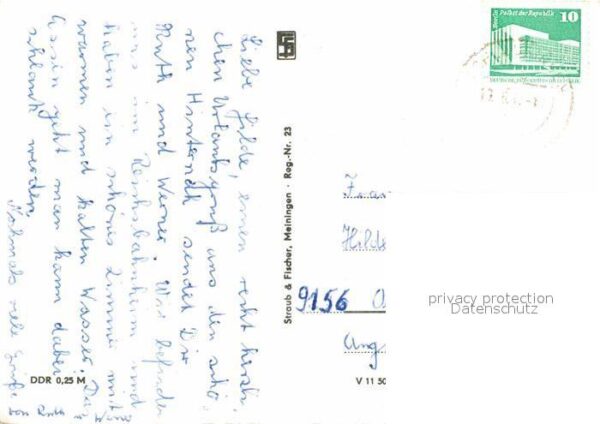 Liebe Hilde, einen recht herzli-
chen Urlaubsgruß aus den schö-
nen Hinternah sendet Dir
Ruth und Werner. Wir befinden
uns im Reichsbahnheim und
haben ein schönes Zimmer mit
warmen und kalten Wasser. Das
Essen geht man kann dabei
schlank werden.
Nochmals viele Grüße
von Ruth
u Werner
DDR 0,25 M
Straub & Fischer, Meiningen · Reg.-Nr. 23
V 11 50
Berlin Palast der Republik
10
DEUTSCHE DEMOKRATISCHE REPUBLIK
Frau
Hilde
9156 O
privacy protection
Datenschutz